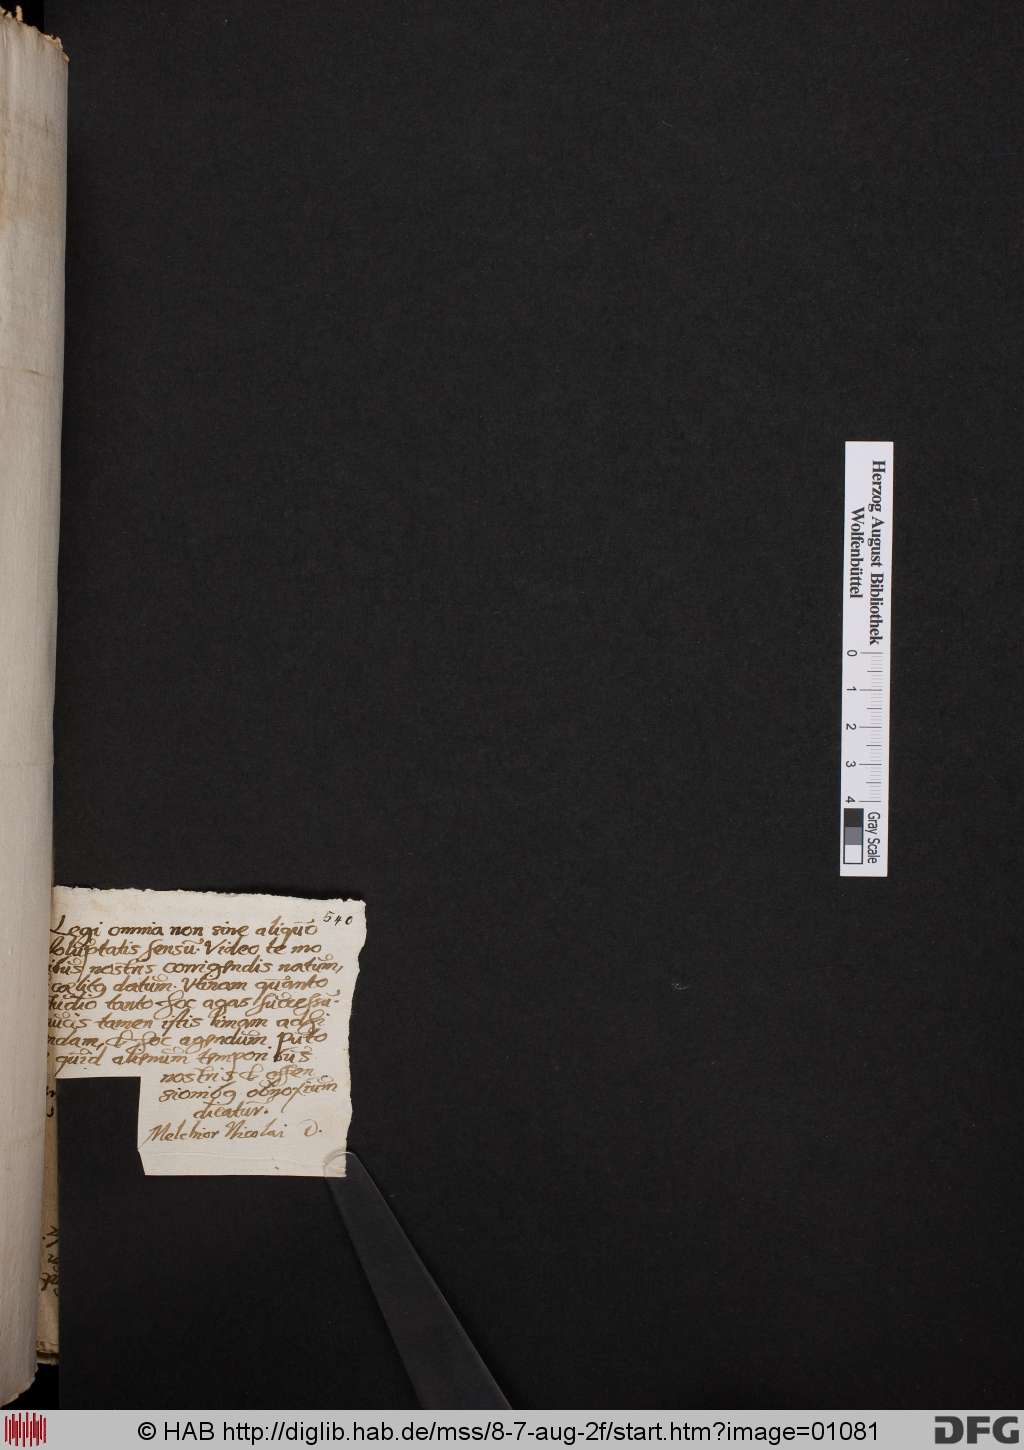 540
Legi omnia non sine aliquō
voluptatis sensu. Video te mo
ribus nostris corrigendis natum,
cœlitq datum. Utinam quanto
studio tanto hoc agas successu.
tamen istis limam adhi
endam, & hoc agendum puto
quid alienum temporibus
nostris & offen
sionibq obnoxium
dicatur.
Melchior Nicolai D.
Herzog August Bibliothek
Wolfenbüttel
0 1 2 3 4
Gray Scale
© HAB http://diglib.hab.de/mss/8-7-aug-2f/start.htm?image=01081
DFG